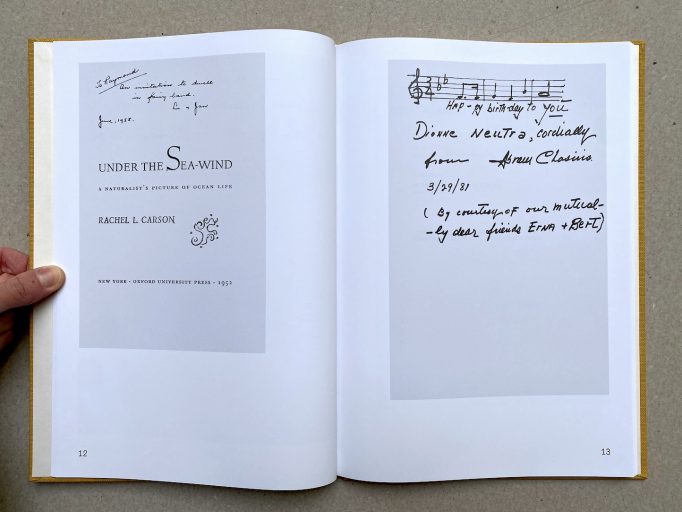 To Raymond
An invitation to dwell
in fairy land.
June, 1952.
UNDER THE SEA-WIND
A NATURALIST'S PICTURE OF OCEAN LIFE
RACHEL L. CARSON
NEW YORK · OXFORD UNIVERSITY PRESS · 1952
12
3 4
HAP-py birth-day to you
Dionne Neutra, cordially
from Abram Chasins.
3/29/81
( By courtesy of our mutual-
-ly dear friends ErnA + BerT)
13